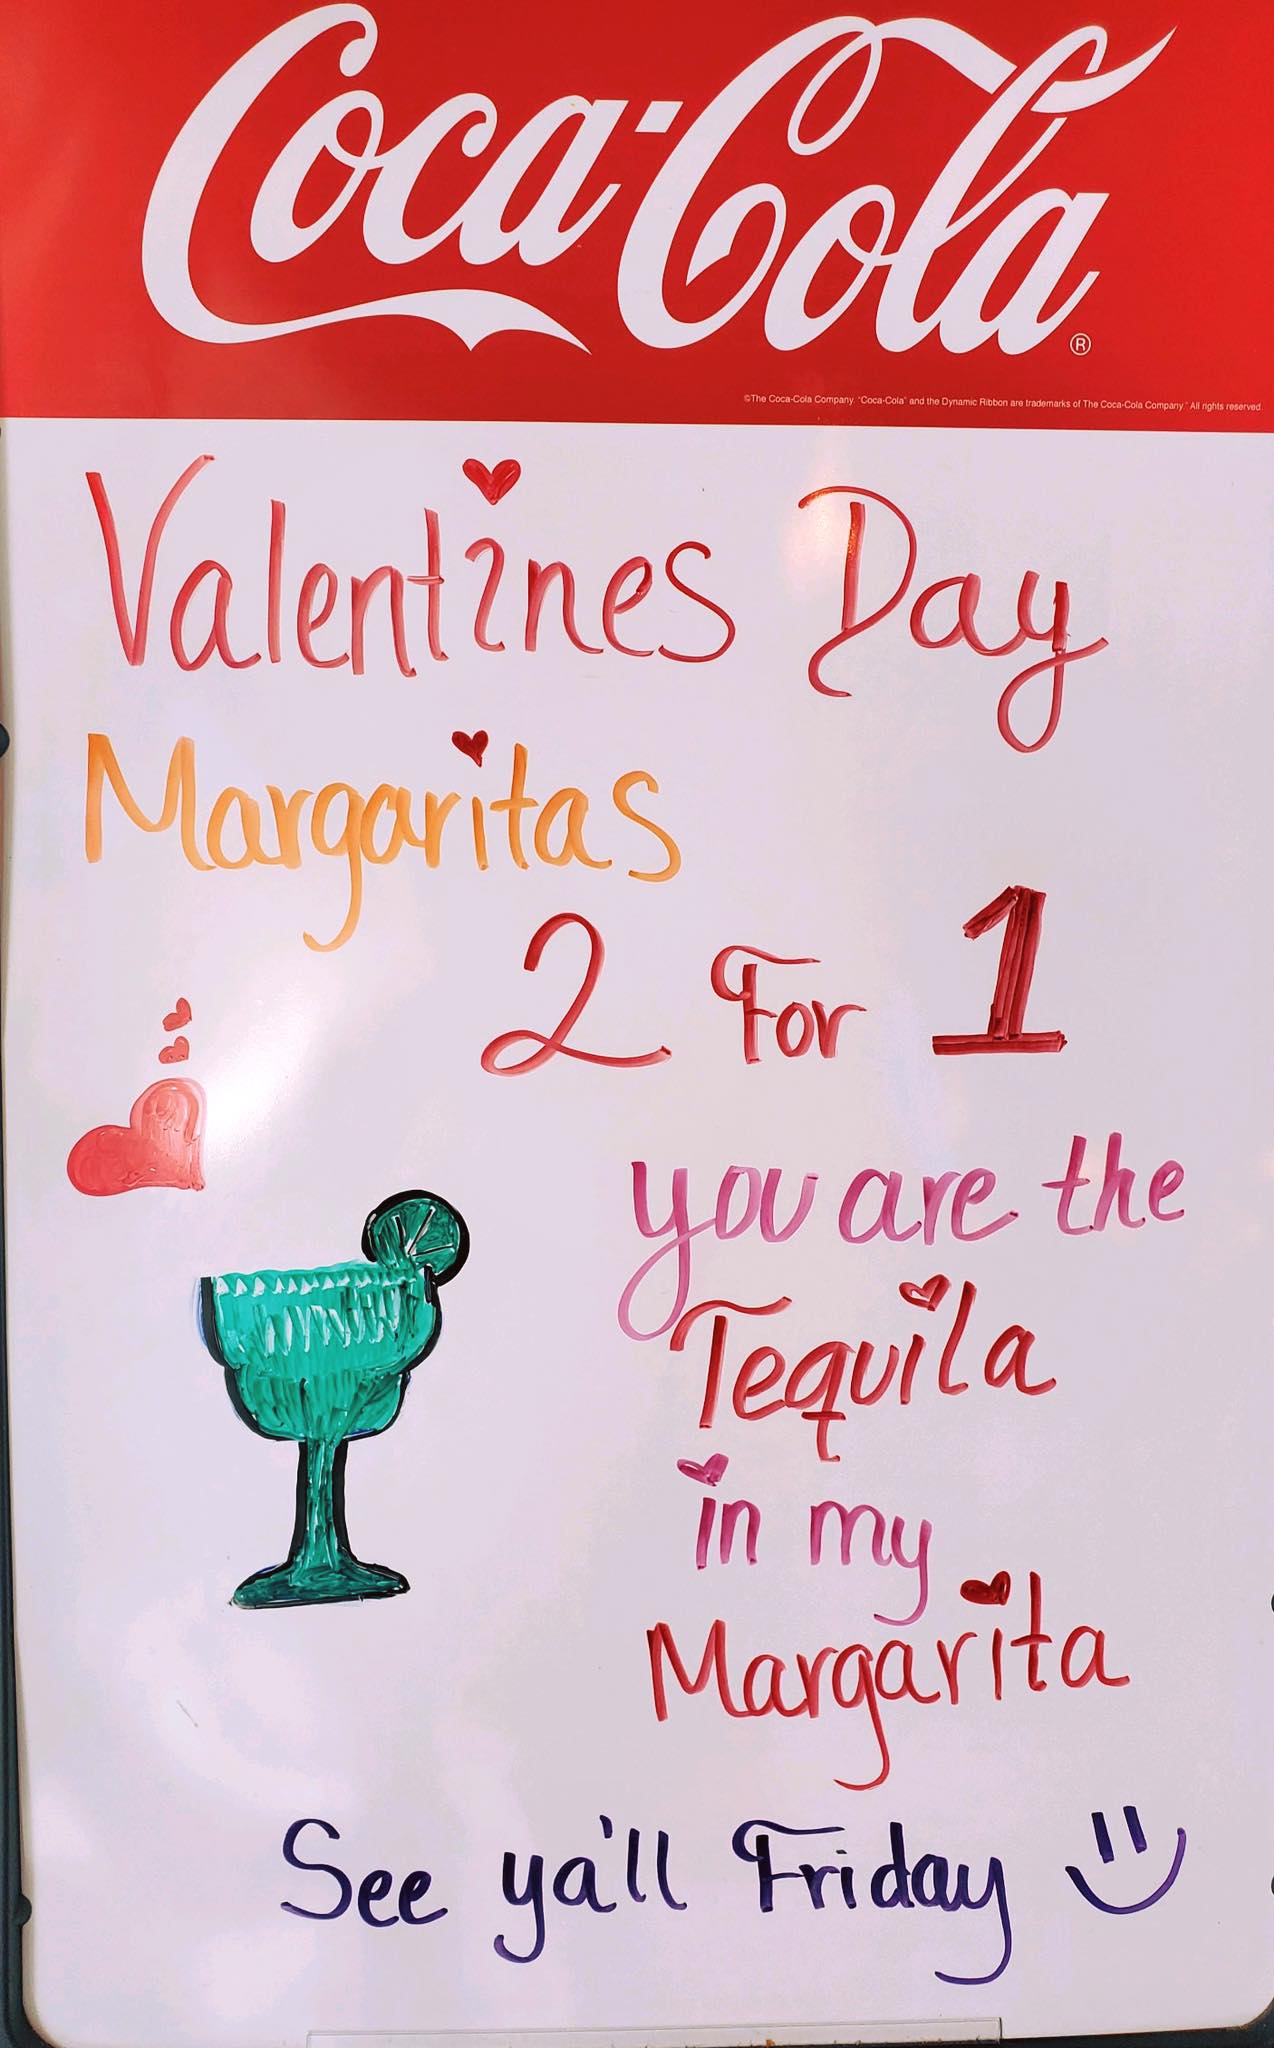 Coca-Cola®
©The Coca-Cola Company. "Coca-Cola" and the Dynamic Ribbon are trademarks of The Coca-Cola Company." All rights reserved.
Valentines Day
Margaritas
2 For 1
you are the
Tequila
in my
Margarita
See ya'll Friday